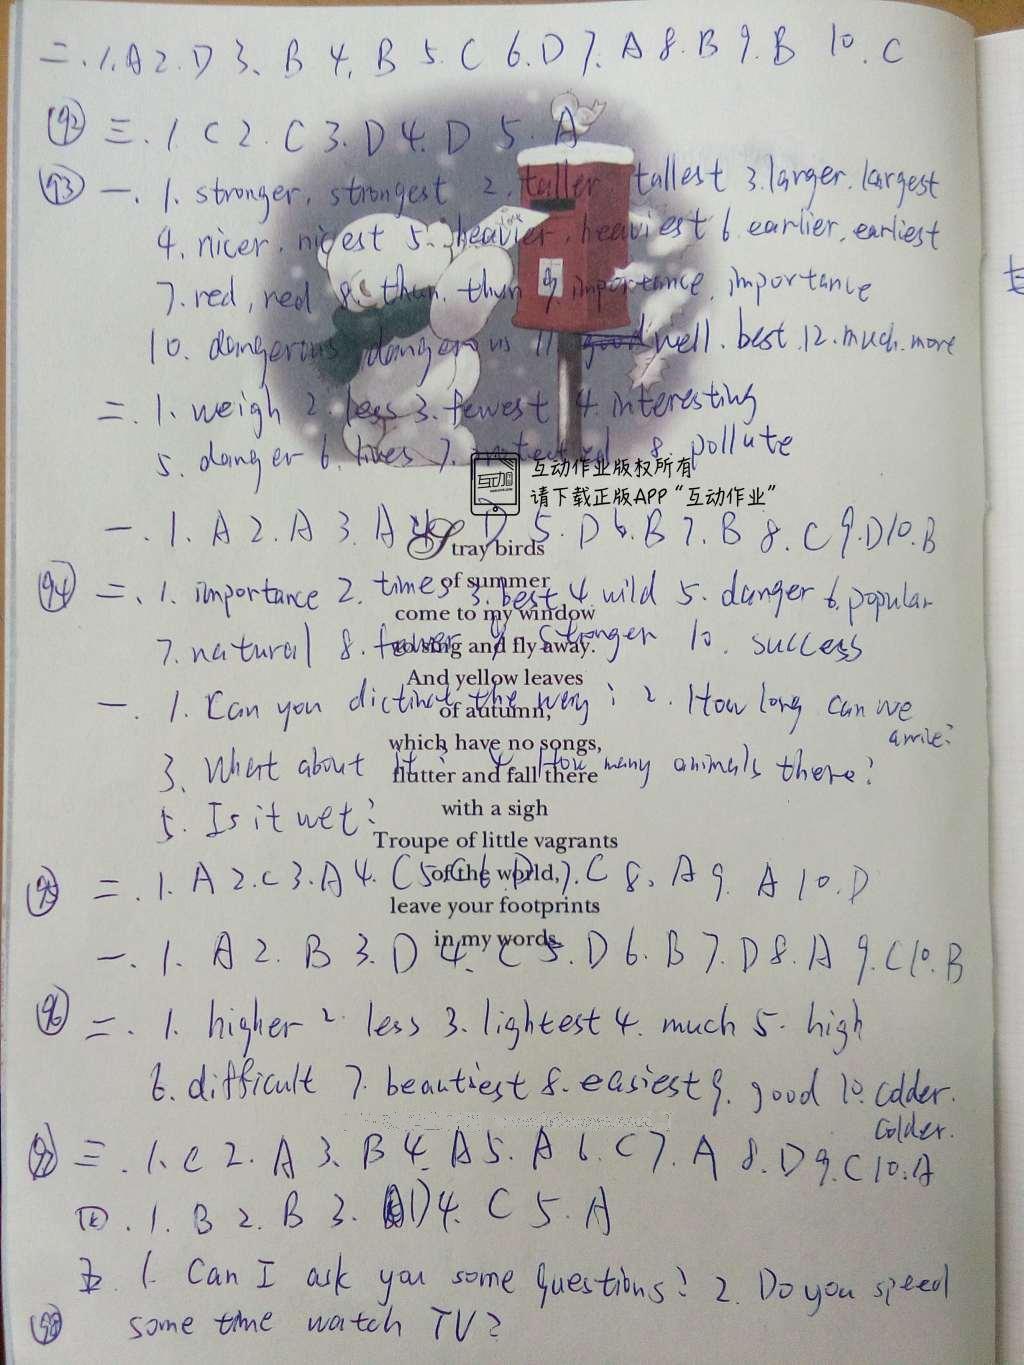 二. 1. A 2. D 3. B 4. B 5. C 6. D 7. A 8. B 9. B 10. C
92 三. 1 C 2. C 3. D 4. D 5. A
93 一. 1. stronger, strongest 2. taller tallest 3. larger. largest
4. nicer. nicest 5. heavier, heaviest 6. earlier, earliest
7. red, red 8. thun. thun 9. importance, importance
10. dangerous dangerous 11. well. best. 12. much. more
二. 1. weigh 2. less 3. fewest 4. interesting
5. danger 6. lives 7. 8. pollute
互动作业版权所有
请下载正版APP“互动作业”
一. 1. A 2. A 3. A 4. D 5. D 6. B 7. B 8. C 9. D 10. B
Stray birds
94 二. 1. importance 2. times 3. best 4. wild 5. danger 6. popular
of summer
come to my window
7. natural 8. fewer 9. stronger 10. success
to sing and fly away.
And yellow leaves
一. 1. Can you the way? 2. How long can we arrive?
of autumn,
which have no songs,
3. What about it? 4. How many animals there?
flutter and fall there
with a sigh
5. Is it wet?
Troupe of little vagrants
95 二. 1. A 2. C 3. A 4. C 5. C 6. D 7. C 8. A 9. A 10. D
of the world,
leave your footprints
in my words.
一. 1. A 2. B 3. D 4. C 5. D 6. B 7. D 8. A 9. C 10. B
96 二. 1. higher 2. less 3. lightest 4. much 5. high
6. difficult 7. beautiest 8. easiest 9. good 10. colder. colder.
97 三. 1. C 2. A 3. B 4. A 5. A 6. C 7. A 8. D 9. C 10. A
四. 1. B 2. B 3. D 4. C 5. A
五. 1. Can I ask you some questions? 2. Do you speed
98 some time watch TV?